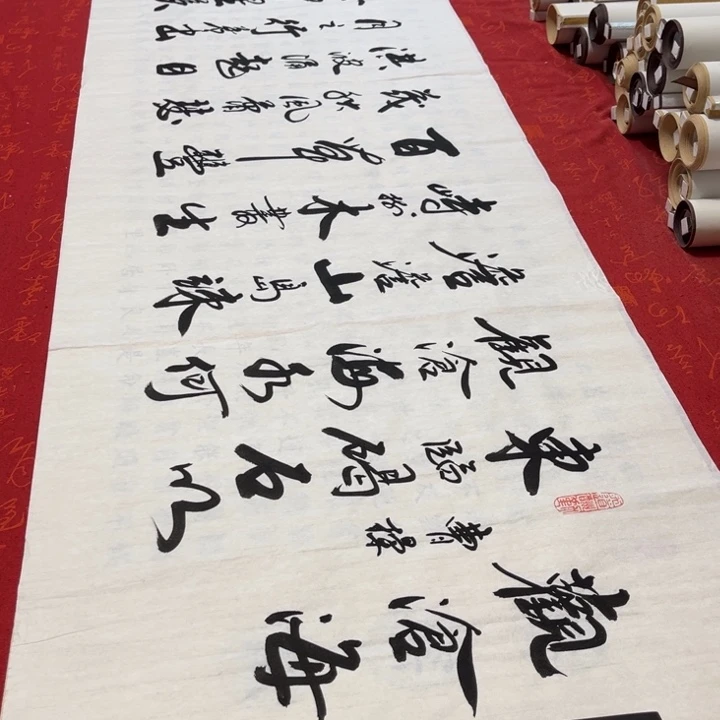 觀滄海
曹操
東臨碣石以
觀滄海水何
澹澹山島竦
峙樹木叢生
百草豐
茂秋風蕭瑟
洪波涌起日
月之行若出